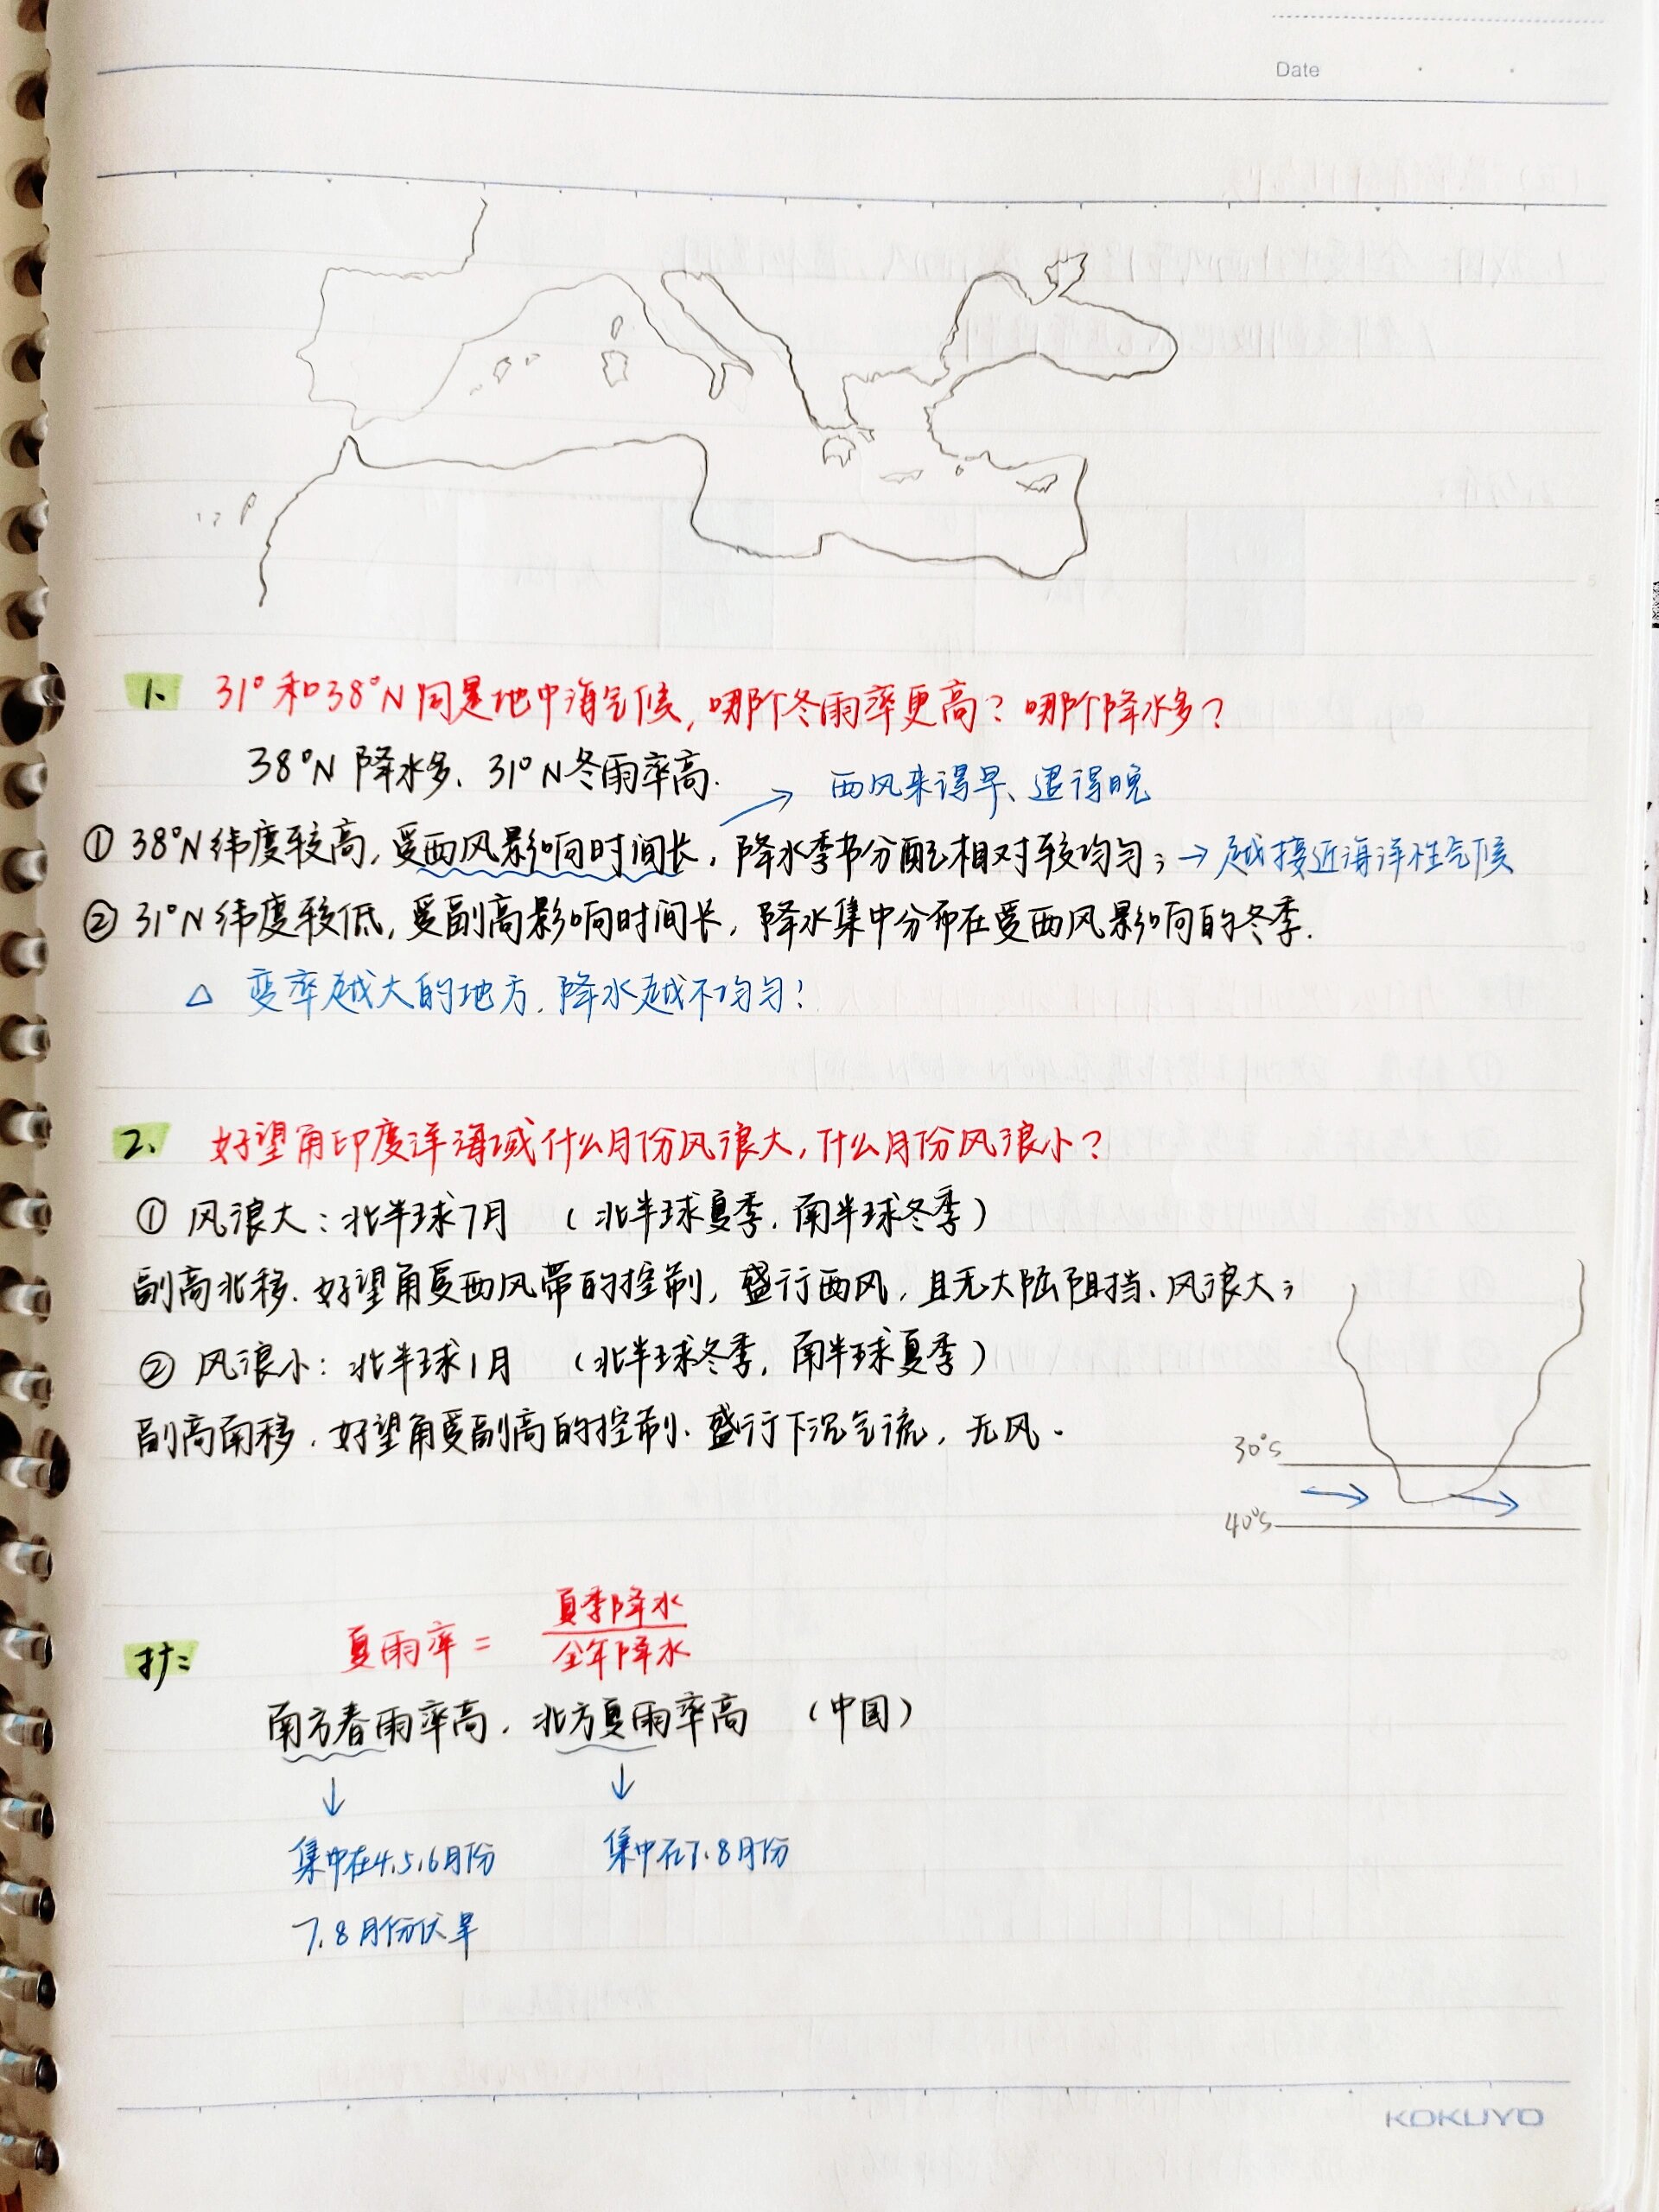 Date
1. 31°和38°N同是地中海气候,哪个冬雨率更高?哪个降水多?
38°N 降水多、31°N冬雨率高.
→ 西风来得早、退得晚
① 38°N纬度较高,受西风影响时间长,降水季节分配相对较均匀; → 越接近海洋性气候
② 31°N纬度较低,受副高影响时间长,降水集中分布在受西风影响的冬季.
△ 变率越大的地方,降水越不均匀!
2. 好望角印度洋海域什么月份风浪大,什么月份风浪小?
① 风浪大:北半球7月 (北半球夏季,南半球冬季)
副高北移、好望角受西风带的控制,盛行西风,且无大陆阻挡、风浪大;
② 风浪小:北半球1月 (北半球冬季,南半球夏季)
副高南移,好望角受副高的控制、盛行下沉气流,无风.
30°S
40°S
夏季降水
扩: 夏雨率 =
全年降水
南方春雨率高,北方夏雨率高 (中国)
↓ ↓
集中在4.5.6月份 集中在7.8月份
7.8月份伏旱
KOKUYO